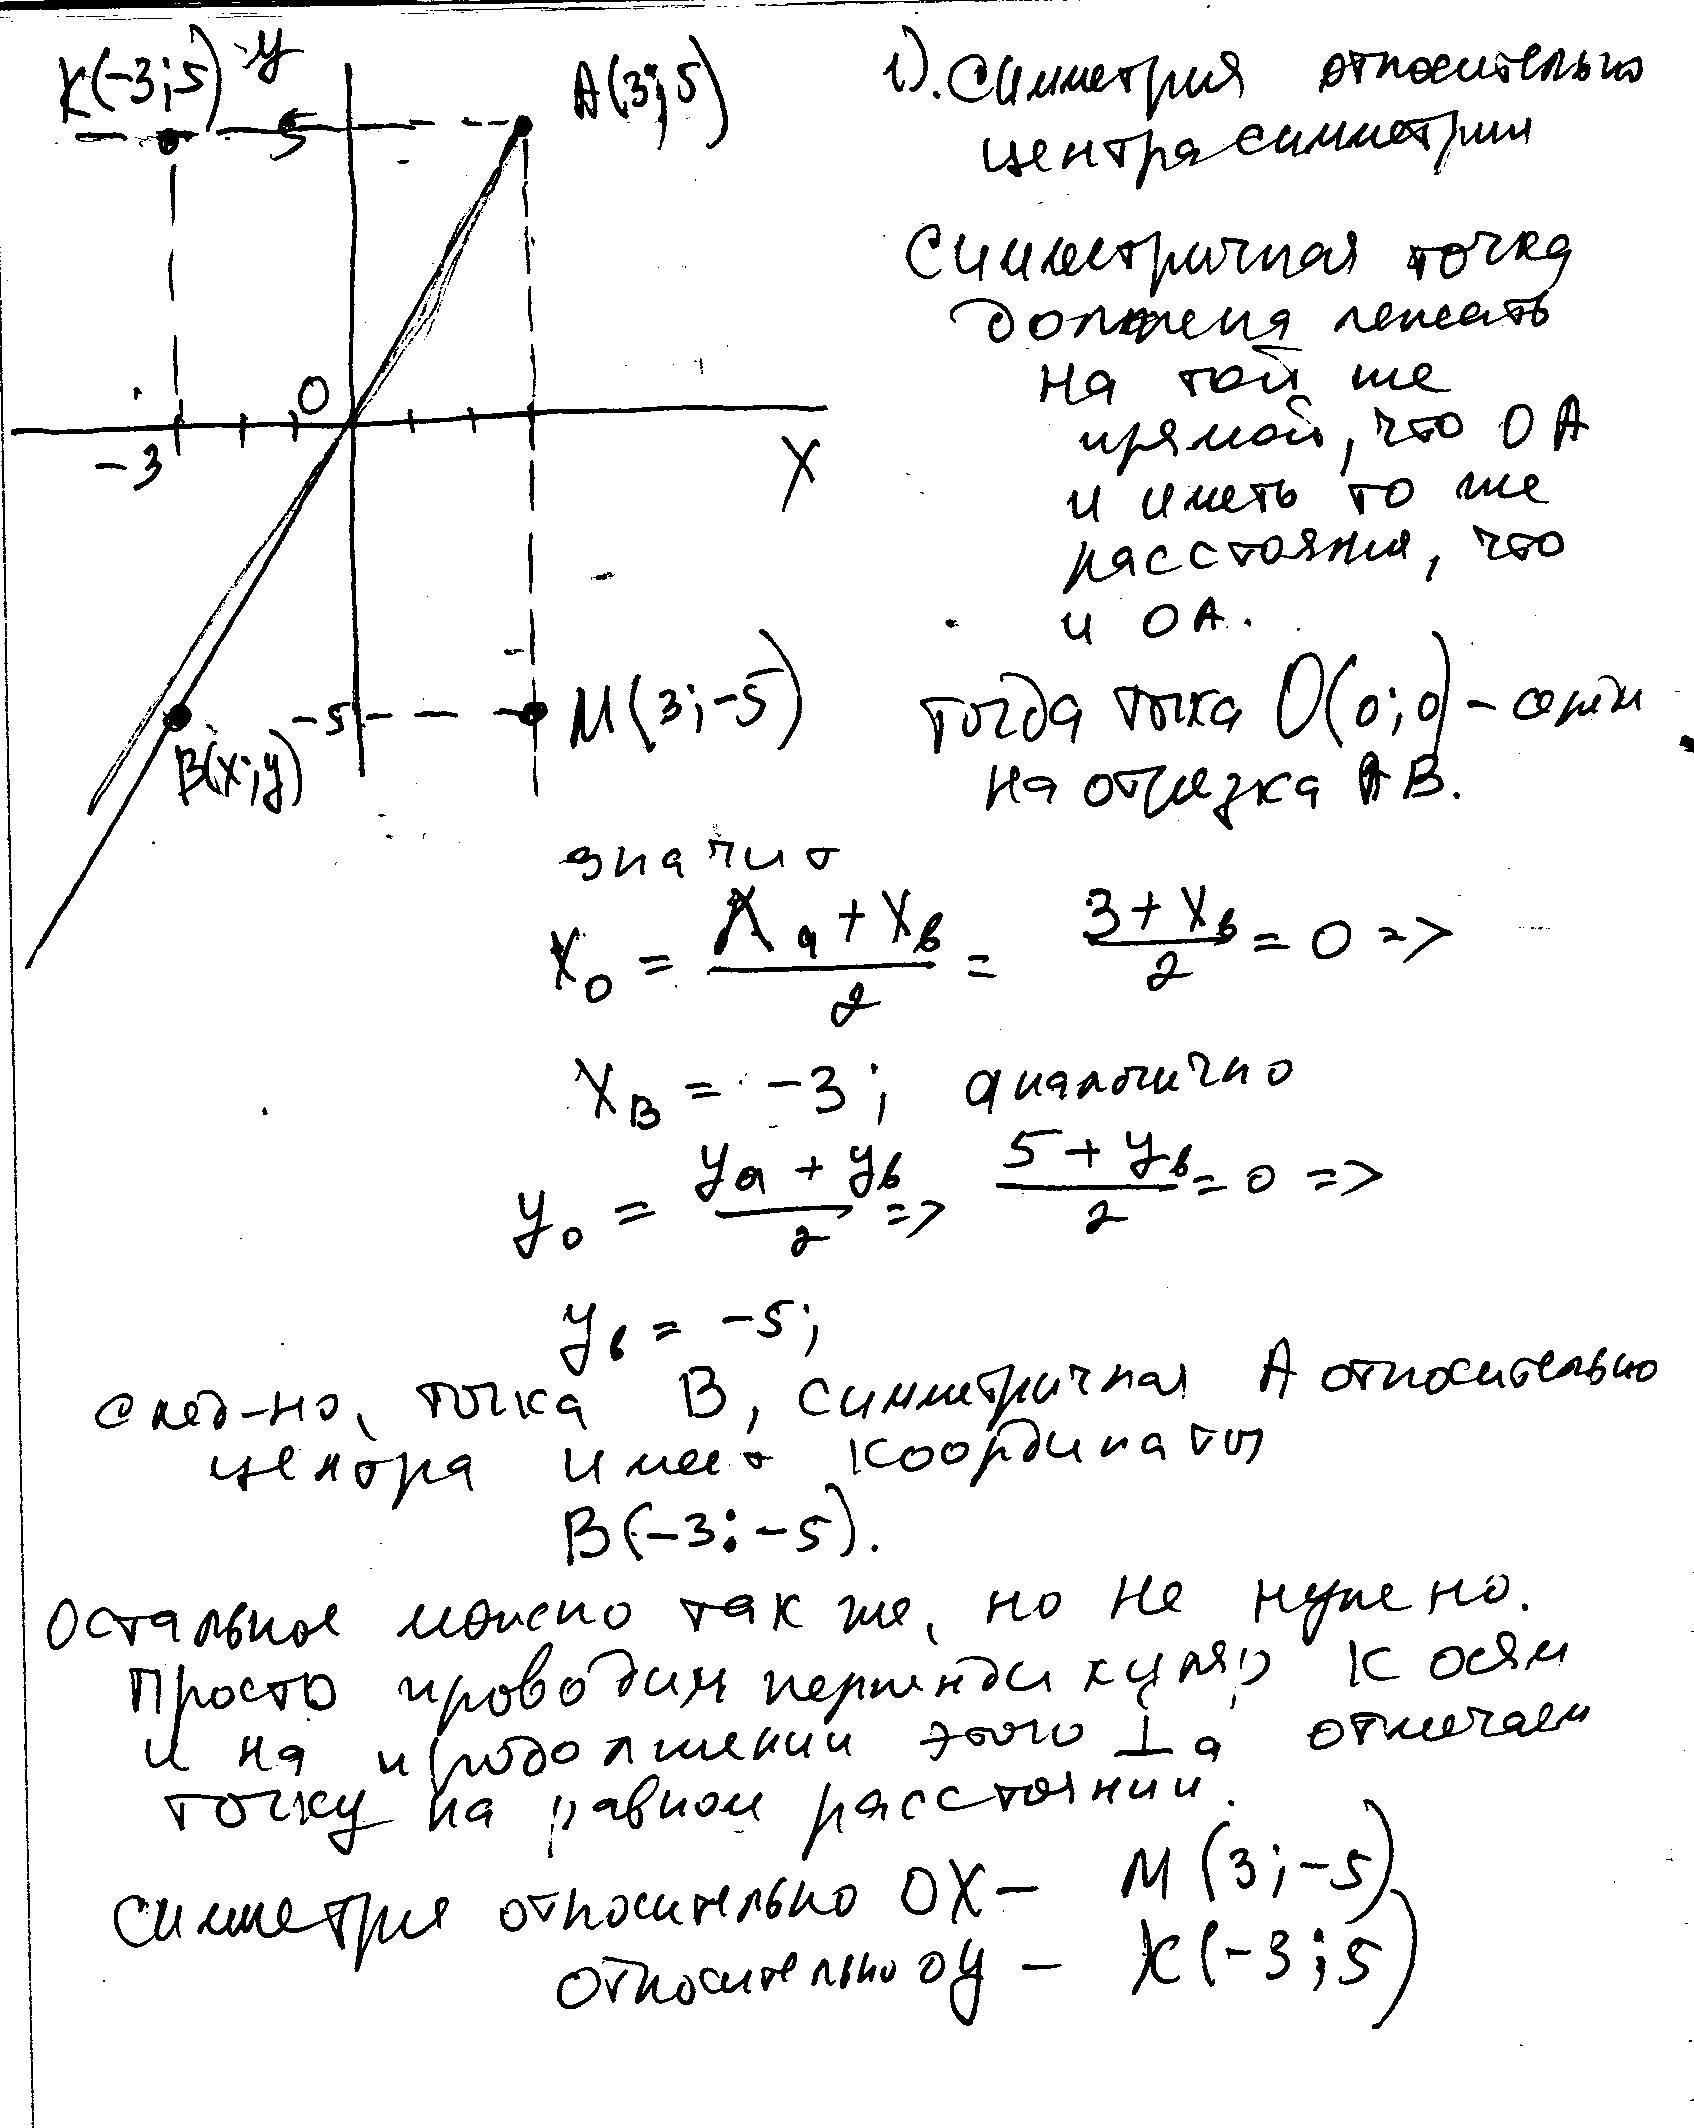 К(-3;5) y A(3;5)
5
O
-3
X
-5 M(3;-5)
B(x;y)
1). Симметрия относительно
центра симметрии
Симметричная точка
должена лежать
на той же
прямой, что OA
и иметь то же
расстояния, что
и OA.
тогда точка O(0;0) -
на отрезка AB.
значит
X₀ = (Xₐ + Xв)/2 = (3 + Xв)/2 = 0 =>
XB = -3; аналогично
y₀ = (yₐ + yв)/2 => (5 + yв)/2 = 0 =>
yв = -5;
след-но, точка B, симметричная A относительно
центра имеет координаты
B(-3;-5).
Остальное можно так же, но не нужно.
Просто проводим перпендикуляр к осям
и на продолжении этого ⊥а отмечаем
точку на равном расстоянии.
Симметрия относительно OX - M(3;-5)
относительно OY - K(-3;5)